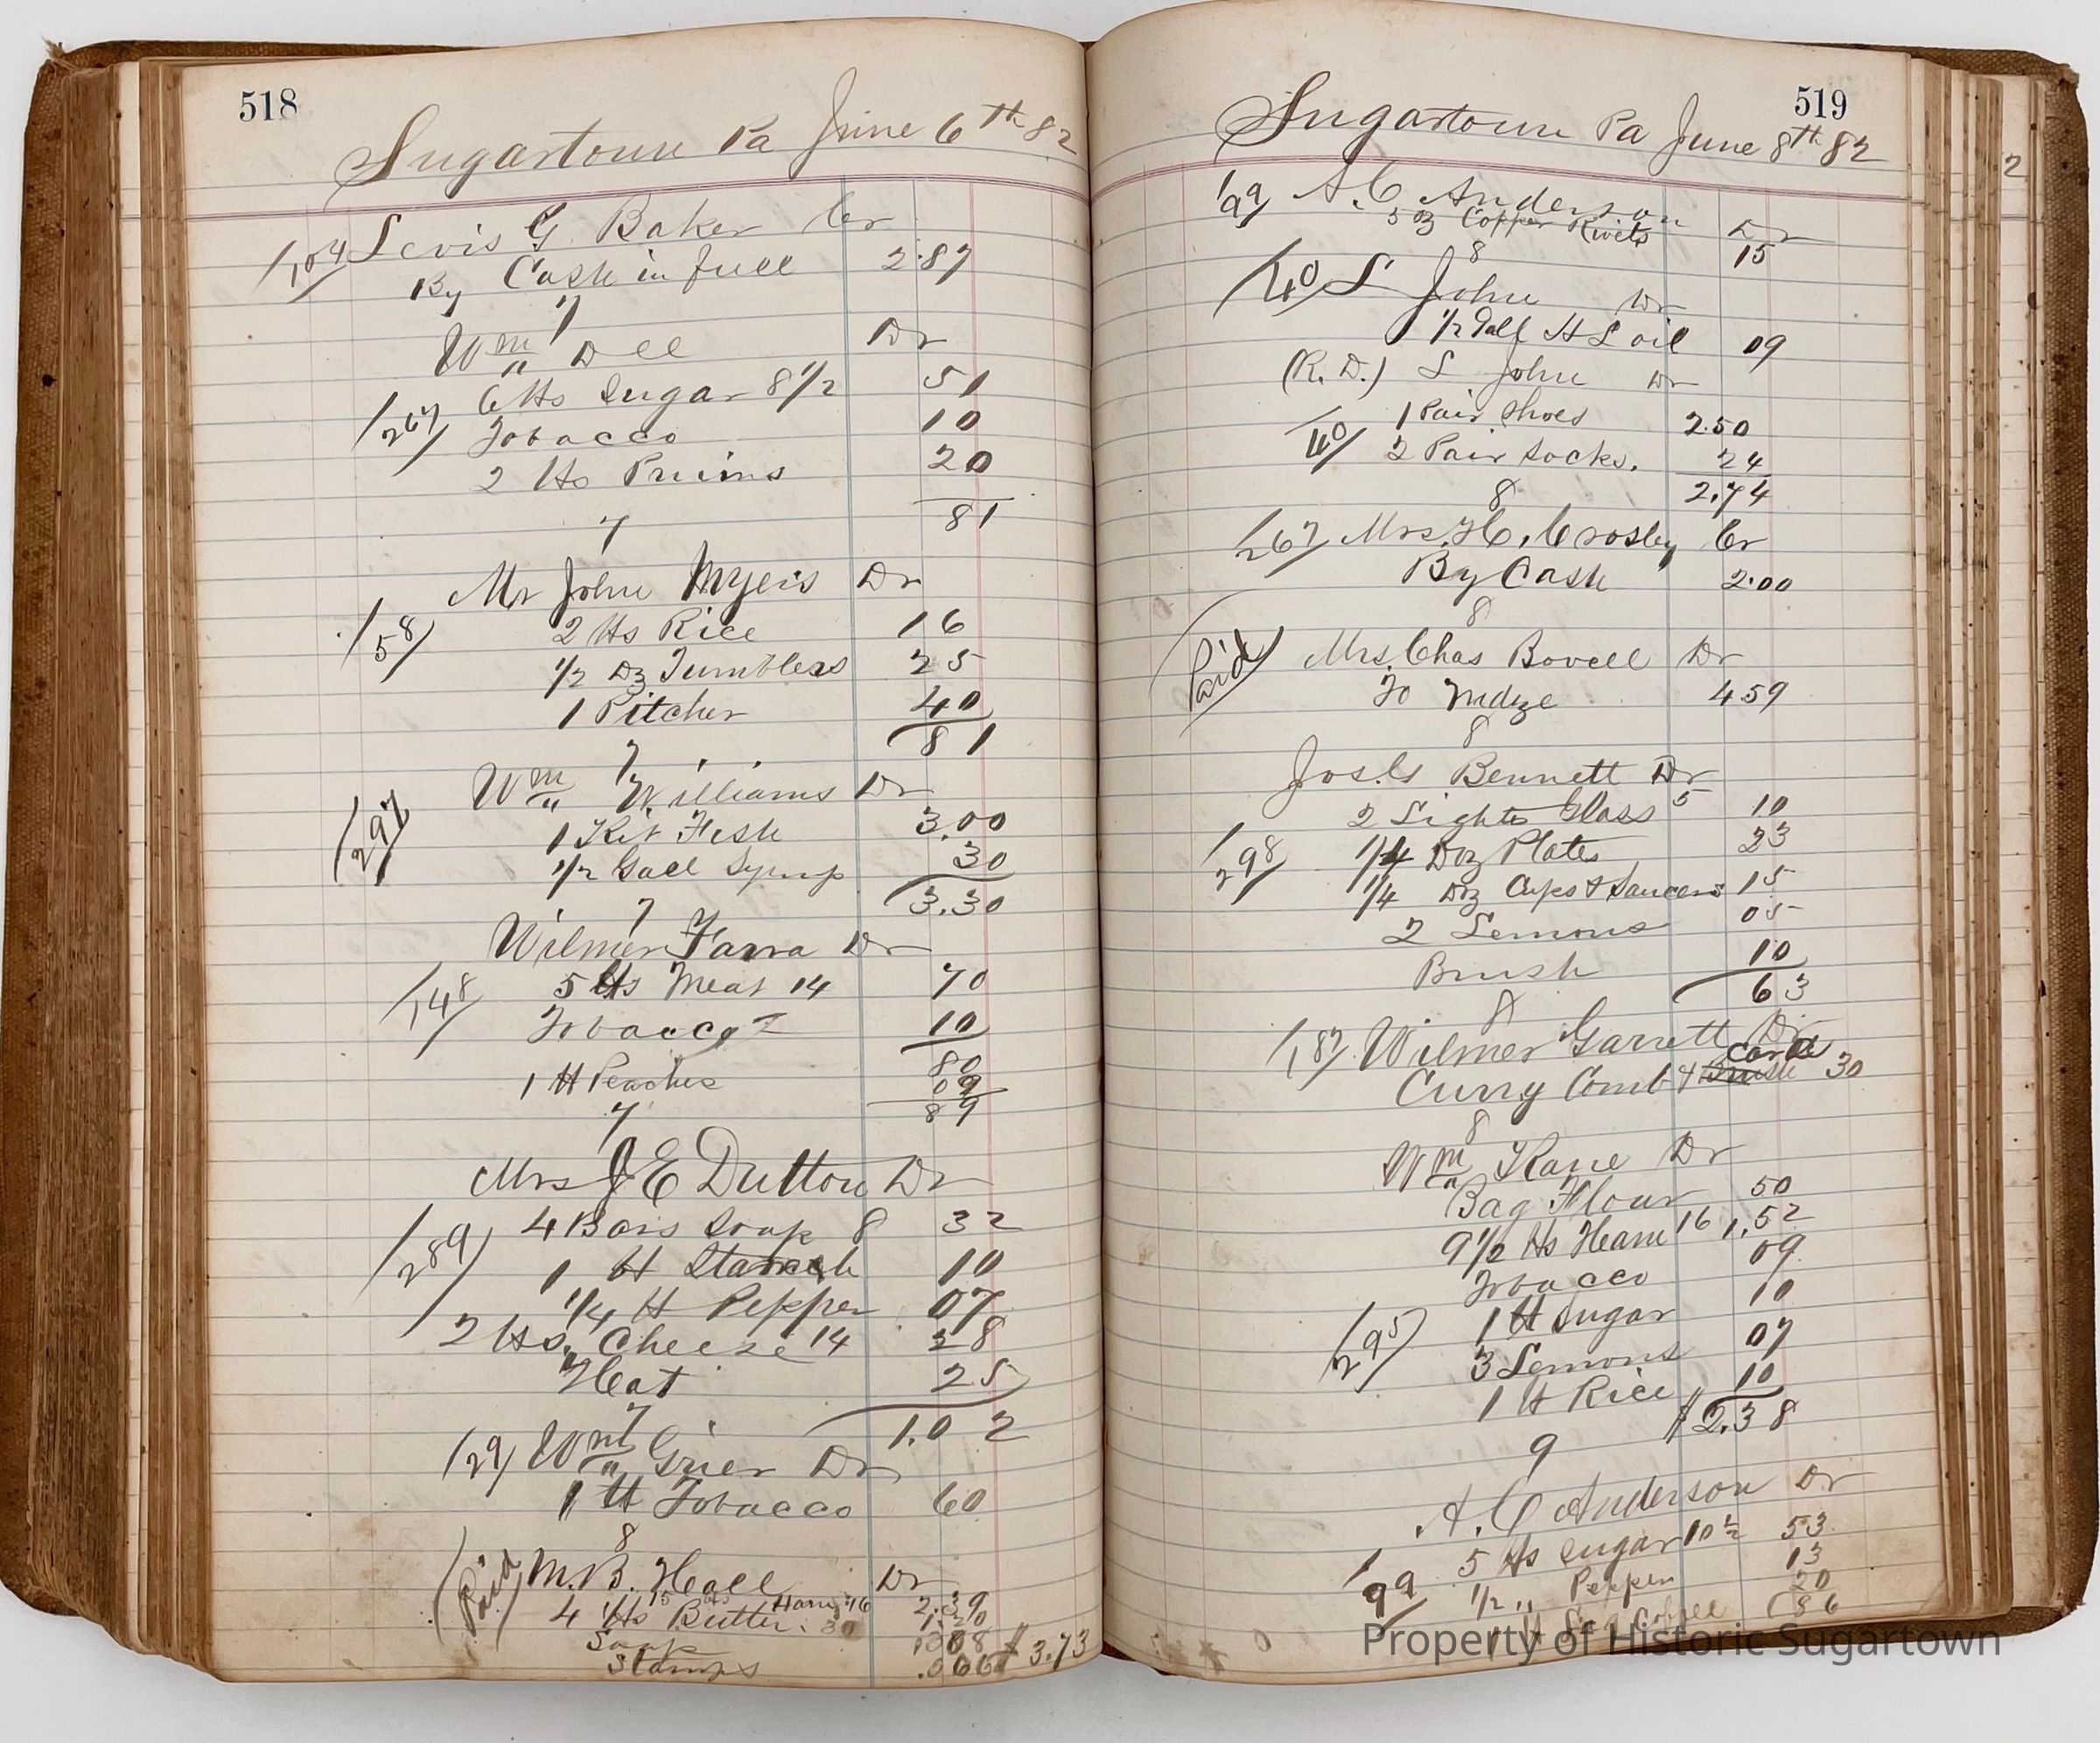 518
Sugartown Pa June 6th 82
Lewis G Baker Cr
/104/ By Cash in full 2.87
7
Wm Dell Dr
6 lbs Sugar 8 1/2 51
/267/ Tobacco 10
2 lbs Pruins 20
81
7
Mr John Myers Dr
/58/ 2 lbs Rice 16
1/2 Dz Tumblers 25
1 Pitcher 40
81
7
Wm Williams Dr
/297/ 1 Kit Fish 3.00
1/2 Gall Syrup 30
3.30
7
Wilmer Farra Dr
/148/ 5 lbs Meat 14 70
Tobacco 10
80
1 lb Peaches 09
89
7
Mrs J E Dutton Dr
/289/ 4 Bars Soap 8 32
1 lb Starch 10
1/4 lb Pepper 07
2 lbs. Cheese 14 28
Hat 25
1.02
7
/29/ Wm Grier Dr
1 lb Tobacco 60
8
Paid M.B. Hall Dr
15 lbs Ham 16 2.39
4 lbs Butter. 30 1.20
Soap 08
Stamps .06 $3.73
519
Sugartown Pa June 8th 82
/99/ A.C Anderson Dr
5 oz Copper Rivets 15
8
/40/ L John Dr
1/2 Gall H L oil 09
(R.D.) L John Dr
1 Pair Shoes 2.50
/40/ 2 Pair Socks. 24
2.74
8
/267/ Mrs. H. Crosley Cr
By Cash 2.00
8
Paid Mrs. Chas Bovell Dr
To Mdze 459
8
Jos. G Bennett Dr
2 Lights Glass 5 10
/298/ 1/4 Doz Plates 23
1/4 Doz Cups & Saucers 15
2 Lemons 05
Brush 10
63
8
/187/ Wilmer Garrett Dr
Curry Comb & Card 30
8
Wm Kane Dr
Bag Flour 50
9 1/2 lbs Ham 16 1.52
Tobacco 09
/295/ 1 lb Sugar 10
3 Lemons 07
1 lb Rice 10
$2.38
9
A.C Anderson Dr
/99/ 5 lbs Sugar 10 1/2 53
1/2 " Pepper 13
1 lb Coffee 20
86
Property of Historic Sugartown
2